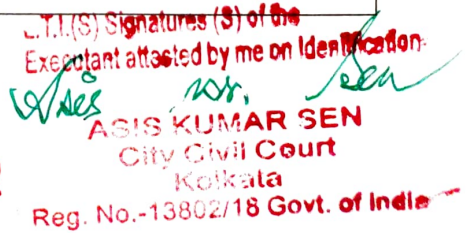 L.T.I.(S) Signatures (S) of the
Executant attested by me on Identification
Asis Kr. Sen
ASIS KUMAR SEN
City Civil Court
Kolkata
Reg. No.-13802/18 Govt. of India